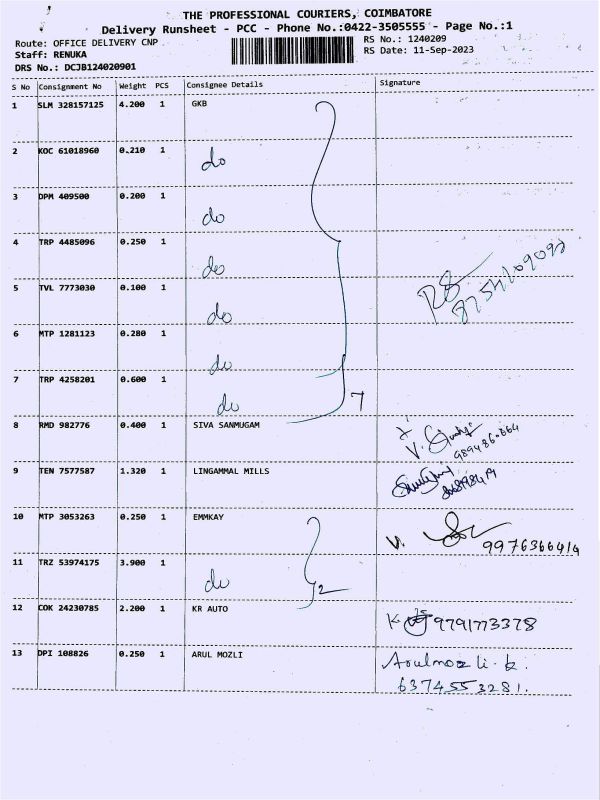 THE PROFESSIONAL COURIERS, COIMBATORE
Delivery Runsheet - PCC - Phone No.:0422-3505555 - Page No.:1
Route: OFFICE DELIVERY CNP RS No.: 1240209
Staff: RENUKA RS Date: 11-Sep-2023
DRS No.: DCJB124020901
S No Consignment No Weight PCS Consignee Details Signature
1 SLM 328157125 4.200 1 GKB
2 KOC 61018960 0.210 1 do
3 DPM 409500 0.200 1 do
4 TRP 4485096 0.250 1 do
5 TVL 7773030 0.100 1 do
6 MTP 1281123 0.280 1 do
7 TRP 4258201 0.600 1 do 7
8 RMD 982776 0.400 1 SIVA SANMUGAM
9 TEN 7577587 1.320 1 LINGAMMAL MILLS
10 MTP 3053263 0.250 1 EMMKAY V. 9976366414
11 TRZ 53974175 3.900 1 do 2
12 COK 24230785 2.200 1 KR AUTO 9791773378
13 DPI 108826 0.250 1 ARUL MOZLI Arulmozli. k.
6374553281.